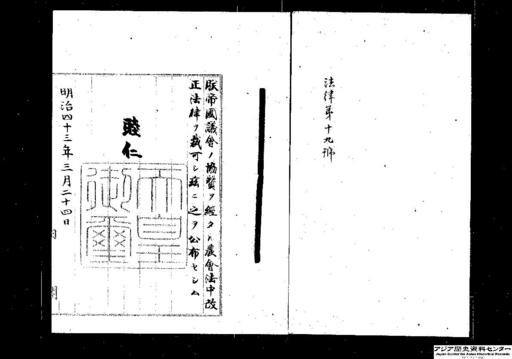 法律第十九號
朕帝國議會ノ協賛ヲ經タル農會法中改
正法律ヲ裁可シ茲ニ之ヲ公布セシム
睦仁
天皇
御璽
明治四十三年三月二十四日
アジア歴史資料センター
Japan Center for Asian Historical Records